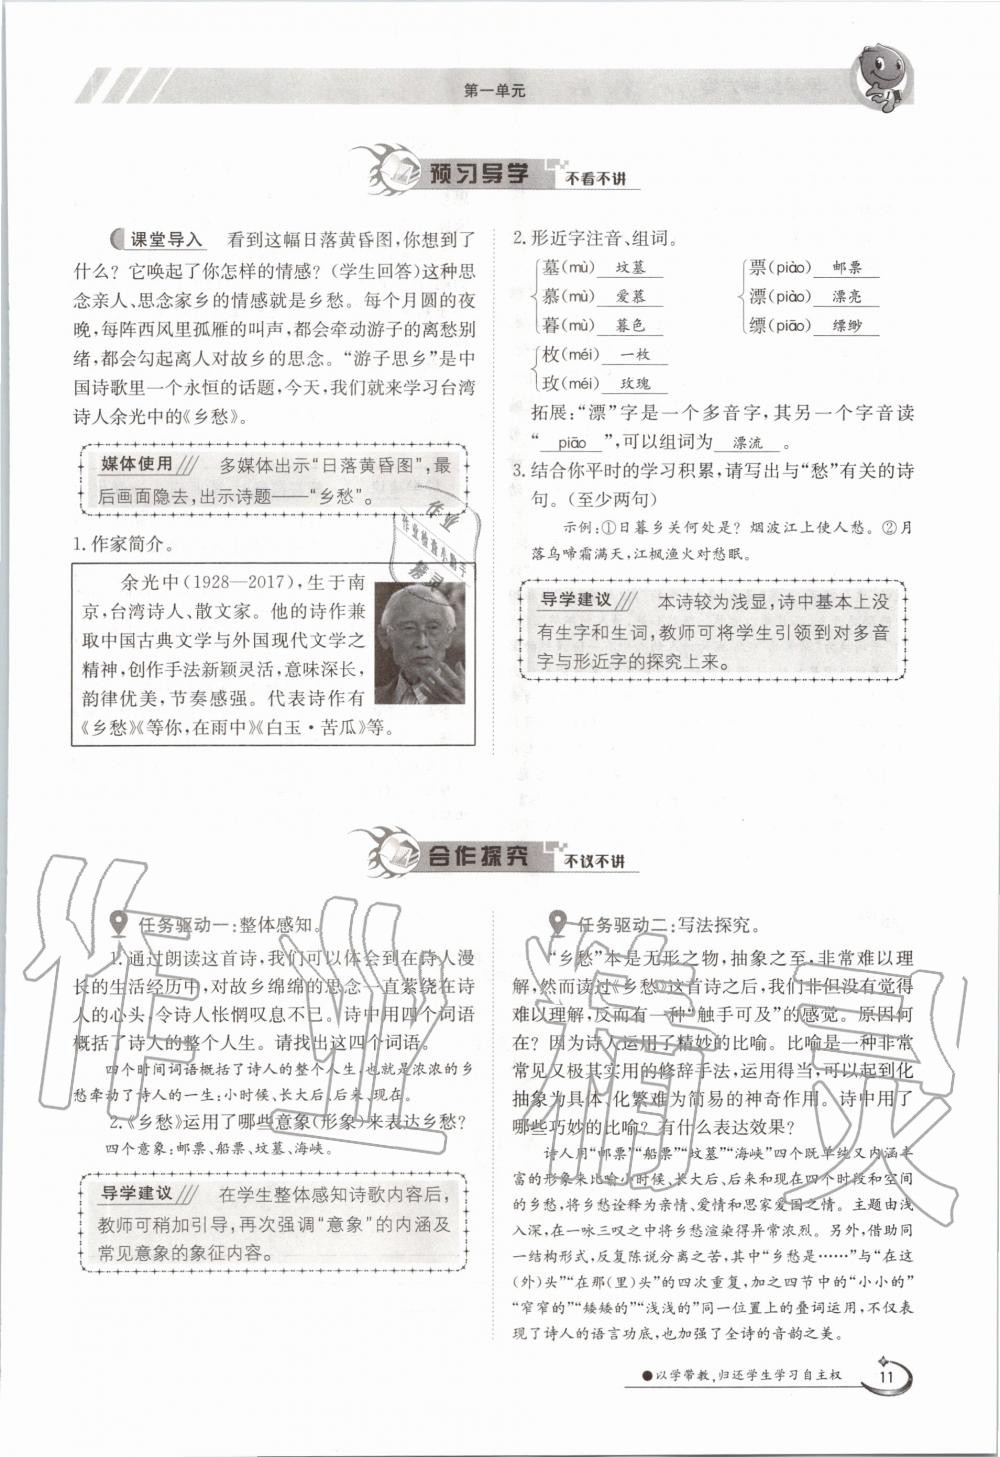 第一单元
预习导学 不看不讲
课堂导入 看到这幅日落黄昏图,你想到了
什么?它唤起了你怎样的情感?(学生回答)这种思
念亲人、思念家乡的情感就是乡愁。每个月圆的夜
晚,每阵西风里孤雁的叫声,都会牵动游子的离愁别
绪,都会勾起离人对故乡的思念。“游子思乡”是中
国诗歌里一个永恒的话题,今天,我们就来学习台湾
诗人余光中的《乡愁》。
媒体使用 多媒体出示“日落黄昏图”,最
后画面隐去,出示诗题——“乡愁”。
1. 作家简介。
余光中(1928—2017),生于南
京,台湾诗人、散文家。他的诗作兼
取中国古典文学与外国现代文学之
精神,创作手法新颖灵活,意味深长,
韵律优美,节奏感强。代表诗作有
《乡愁》《等你,在雨中》《白玉·苦瓜》等。
2. 形近字注音、组词。
墓(mù) 坟墓 票(piào) 邮票
慕(mù) 爱慕 漂(piào) 漂亮
暮(mù) 暮色 缥(piāo) 缥缈
枚(méi) 一枚
玫(méi) 玫瑰
拓展:“漂”字是一个多音字,其另一个字音读
“ piāo ”,可以组词为 漂流 。
3. 结合你平时的学习积累,请写出与“愁”有关的诗
句。(至少两句)
示例:①日暮乡关何处是?烟波江上使人愁。②月
落乌啼霜满天,江枫渔火对愁眠。
导学建议 本诗较为浅显,诗中基本上没
有生字和生词,教师可将学生引领到对多音
字与形近字的探究上来。
合作探究 不议不讲
任务驱动一:整体感知。
1. 通过朗读这首诗,我们可以体会到在诗人漫
长的生活经历中,对故乡绵绵的思念一直萦绕在诗
人的心头,令诗人怅惘叹息不已。诗中用四个词语
概括了诗人的整个人生。请找出这四个词语。
四个时间词语概括了诗人的整个人生,也就是浓浓的乡
愁牵动了诗人的一生:小时候、长大后、后来、现在。
2.《乡愁》运用了哪些意象(形象)来表达乡愁?
四个意象:邮票、船票、坟墓、海峡。
导学建议 在学生整体感知诗歌内容后,
教师可稍加引导,再次强调“意象”的内涵及
常见意象的象征内容。
任务驱动二:写法探究。
“乡愁”本是无形之物,抽象之至,非常难以理
解,然而读过《乡愁》这首诗之后,我们非但没有觉得
难以理解,反而有一种“触手可及”的感觉。原因何
在?因为诗人运用了精妙的比喻。比喻是一种非常
常见又极其实用的修辞手法,运用得当,可以起到化
抽象为具体、化繁难为简易的神奇作用。诗中用了
哪些巧妙的比喻?有什么表达效果?
诗人用“邮票”“船票”“坟墓”“海峡”四个既单纯又内涵丰
富的形象来比喻小时候、长大后、后来和现在四个时段和空间
的乡愁,将乡愁诠释为亲情、爱情和思家爱国之情。主题由浅
入深,在一咏三叹之中将乡愁渲染得异常浓烈。另外,借助同
一结构形式,反复陈说分离之苦,其中“乡愁是……”与“在这
(外)头”“在那(里)头”的四次重复,加之四节中的“小小的”
“窄窄的”“矮矮的”“浅浅的”同一位置上的叠词运用,不仅表
现了诗人的语言功底,也加强了全诗的音韵之美。
●以学带教,归还学生学习自主权
11
作业精灵